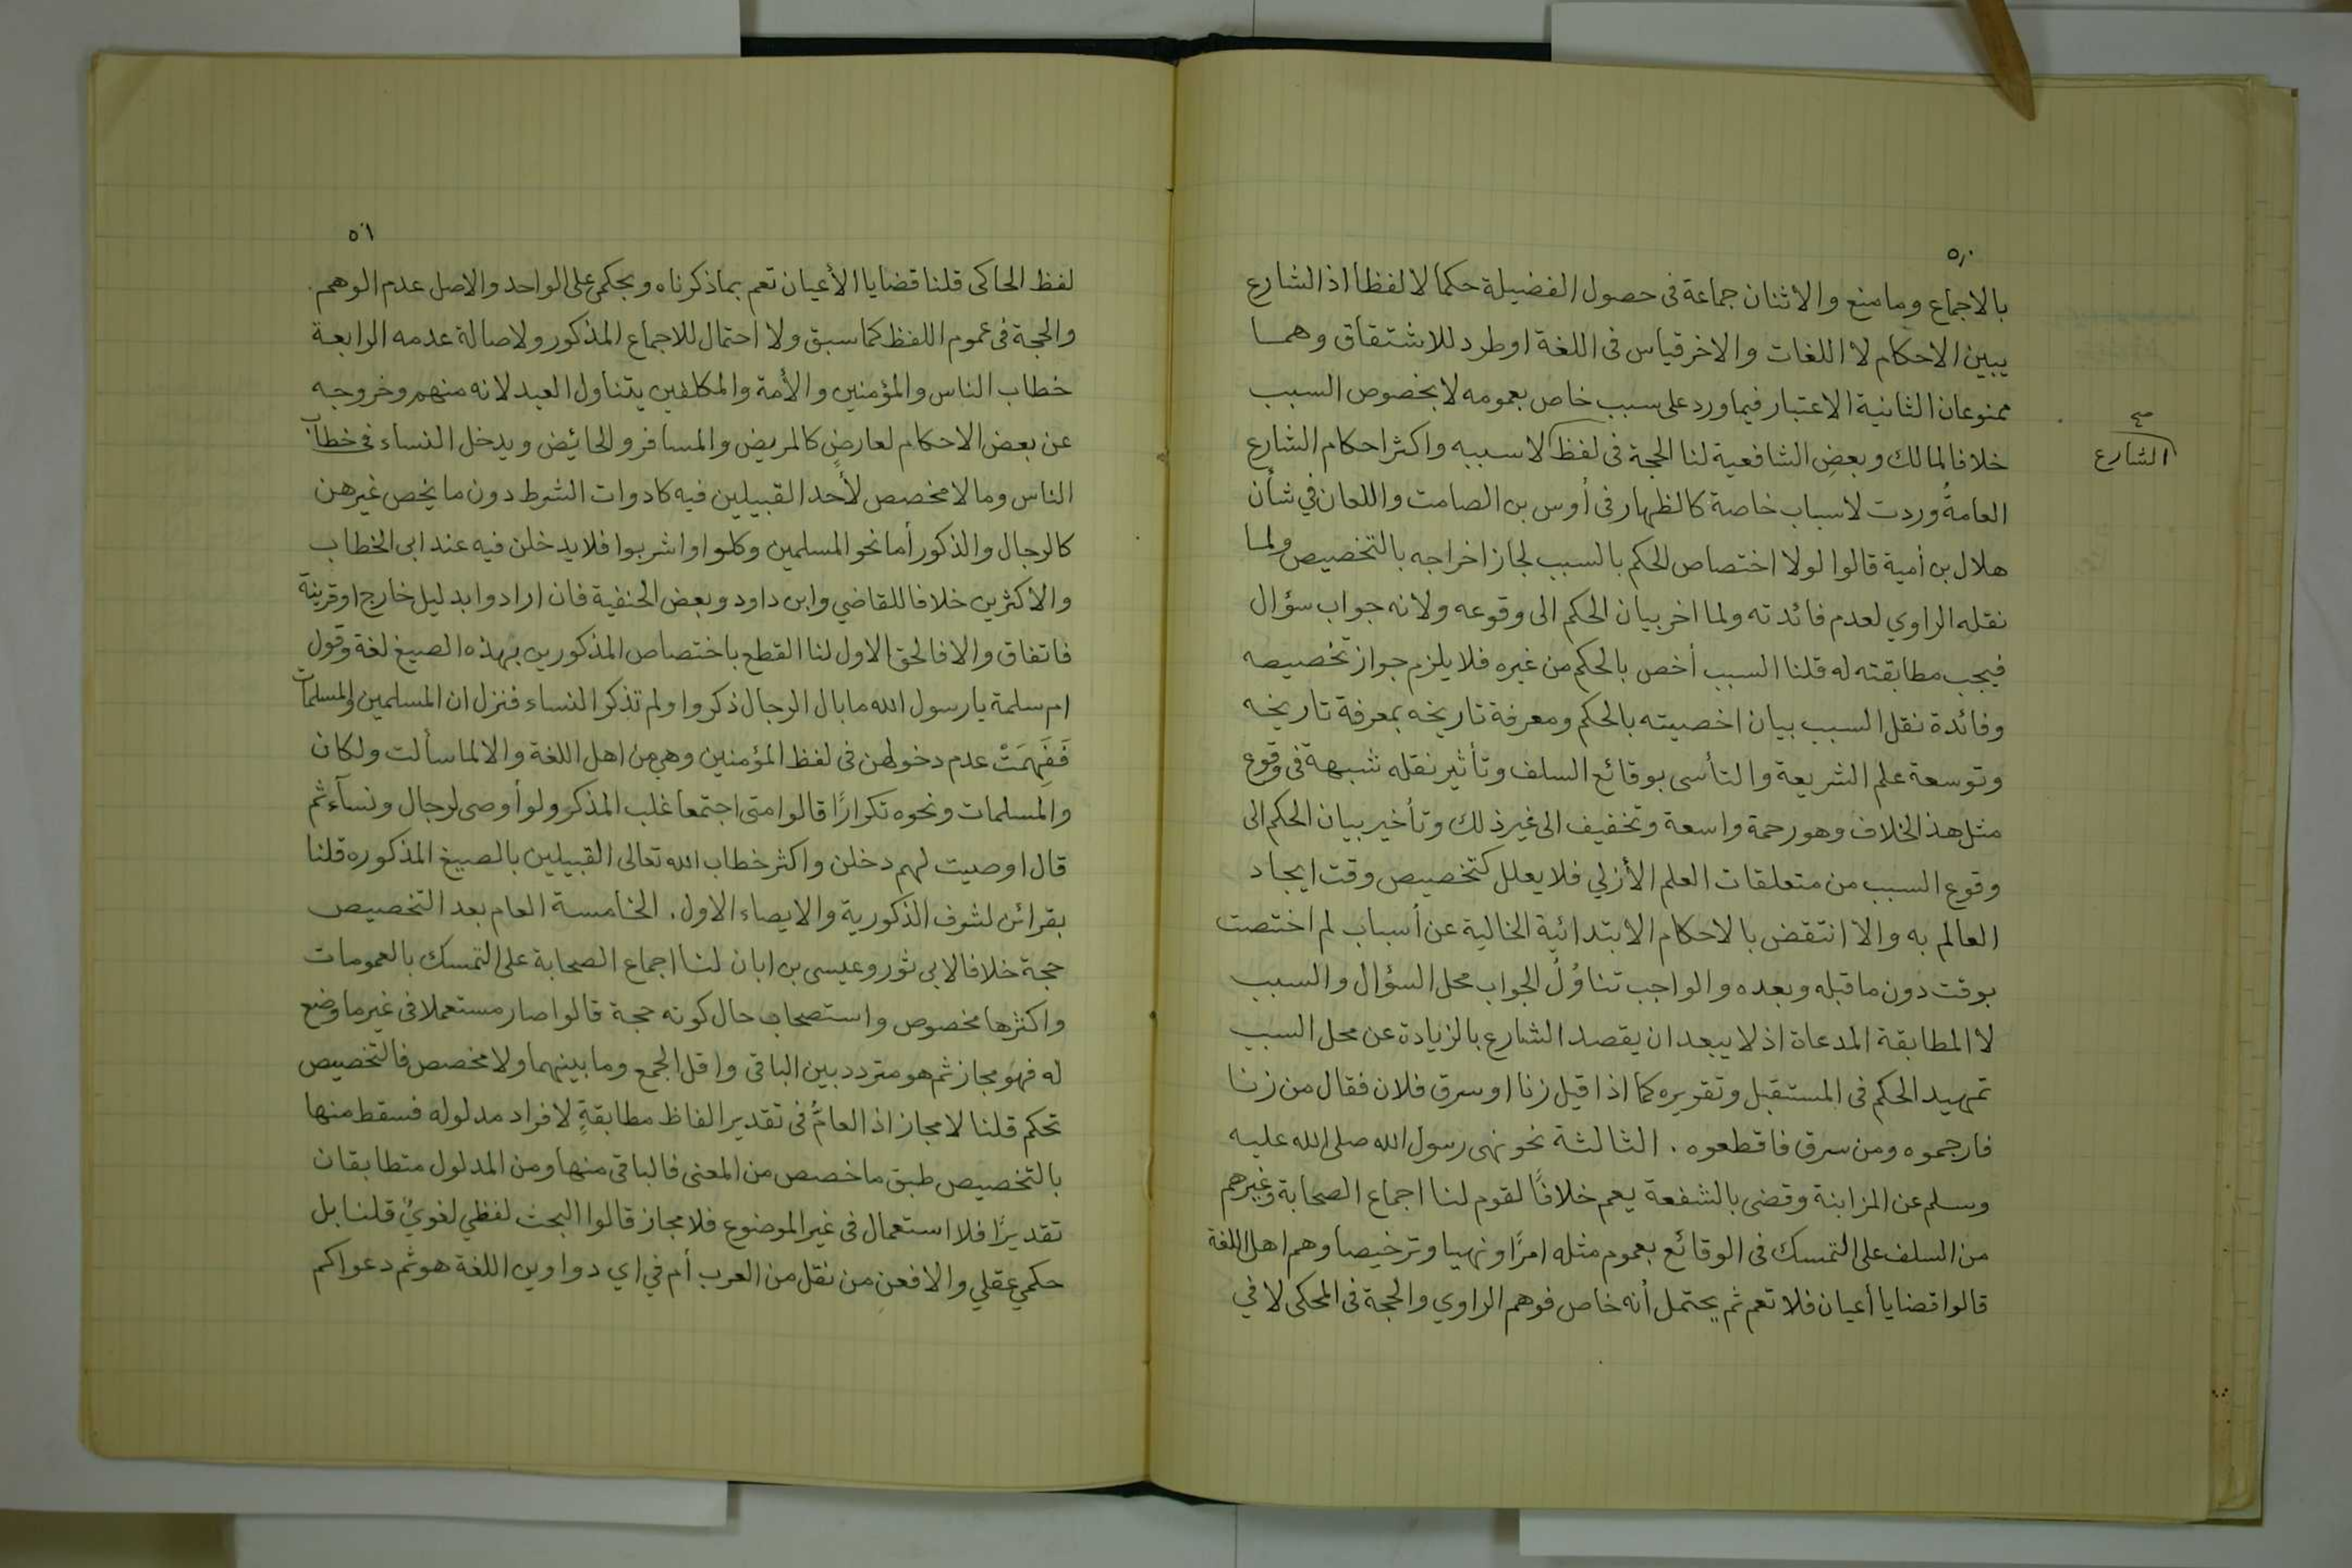 ٥٠
بالاجماع وما منع والاثنان جماعة فى حصول الفضيلة حكما لا لفظا اذ الشارع
يبين الاحكام لا اللغات والاخر قياس فى اللغة او طرد للاشتقاق وهما
ممنوعان الثانية الاعتبار فيما ورد على سبب خاص بعمومه لا بخصوص السبب
خلافا لمالك وبعض الشافعية لنا الحجة فى لفظ لا سببه واكثر احكام الشارع
صح
الشارع
العامةُ وردت لاسباب خاصة كالظهار فى أوس بن الصامت واللعان في شأن
هلال بن أمية قالوا لولا اختصاص الحكم بالسبب لجاز اخراجه بالتخصيص ولما
نقله الراوي لعدم فائدته ولما اخر بيان الحكم الى وقوعه ولانه جواب سؤال
فيجب مطابقته له قلنا السبب أخص بالحكم من غيره فلا يلزم جواز تخصيصه
وفائدة نقل السبب بيان اخصيته بالحكم ومعرفة تاريخه بمعرفة تاريخه
وتوسعة علم الشريعة والتأسى بوقائع السلف وتأثير نقله شبهة فى وقوع
مثل هذا الخلاف وهو رحمة واسعة وتخفيف الى غير ذلك وتأخير بيان الحكم الى
وقوع السبب من متعلقات العلم الأزلي فلا يعلل كتخصيص وقت ايجاد
العالم به والا انتقض بالاحكام الابتدائية الخالية عن أسباب لم اختصت
بوقت دون ما قبله وبعده والواجب تناوُلُ الجواب محل السؤال والسبب
لا المطابقة المدعاة اذ لا يبعد ان يقصد الشارع بالزيادة عن محل السبب
تمهيد الحكم فى المستقبل وتقريره كما اذا قيل زنا او سرق فلان فقال من زنا
فارجموه ومن سرق فاقطعوه . الثالثة نحو نهى رسول الله صلى الله عليه
وسلم عن المزابنة وقضى بالشفعة يعم خلافًا لقوم لنا اجماع الصحابة وغيرهم
من السلف على التمسك فى الوقائع بعموم مثله امرًا ونهيا وترخيصا وهم اهل اللغة
قالوا قضايا أعيان فلا تعم ثم يحتمل أنه خاص فوهم الراوي والحجة فى المحكى لا في
٥١
لفظ الحاكى قلنا قضايا الأعيان تعم بما ذكرناه وبحكمي على الواحد والاصل عدم الوهم.
والحجة فى عموم اللفظ كما سبق ولا احتمال للاجماع المذكور ولاصالة عدمه الرابعة
خطاب الناس والمؤمنين والأمة والمكلفين يتناول العبد لانه منهم وخروجه
عن بعض الاحكام لعارضٍ كالمريض والمسافر والحائض ويدخل النساء فى خطاب
الناس وما لا مخصص لأحد القبيلين فيه كادوات الشرط دون ما يخص غيرهن
كالرجال والذكور أما نحو المسلمين وكلوا واشربوا فلا يدخلن فيه عند ابى الخطاب
والاكثرين خلافا للقاضي وابن داود وبعض الحنفية فان ارادوا بدليل خارج او قرينة
فاتفاق والا فالحق الاول لنا القطع باختصاص المذكورين بهذه الصيغ لغة وقول
ام سلمة يا رسول الله ما بال الرجال ذكروا ولم تذكر النساء فنزل ان المسلمين والمسلمات
فَفَهِمَتْ عدم دخولهن فى لفظ المؤمنين وهي من اهل اللغة والا لما سألت ولكان
والمسلمات ونحوه تكرارًا قالوا متى اجتمعا غلب المذكر ولو أوصى لرجال ونسآء ثم
قال اوصيت لهم دخلن واكثر خطاب الله تعالى القبيلين بالصيغ المذكوره قلنا
بقرائن لشرف الذكورية والايصاء الاول. الخامسة العام بعد التخصيص
حجة خلافا لابى ثور وعيسى بن ابان لنا اجماع الصحابة على التمسك بالعمومات
واكثرها مخصوص واستصحاب حال كونه حجة قالوا صار مستعملا فى غير ما وضع
له فهو مجاز ثم هو متردد بين الباقى واقل الجمع وما بينهما ولا مخصص فالتخصيص
تحكم قلنا لا مجاز اذ العامُّ فى تقدير الفاظ مطابقةٍ لافراد مدلوله فسقط منها
بالتخصيص طبق ما خصص من المعنى فالباقى منها ومن المدلول متطابقان
تقديرًا فلا استعمال فى غير الموضوع فلا مجاز قالوا البحث لفظي لغويٌ قلنا بل
حكمي عقلي والا فعن من نقل من العرب أم في اي دواوين اللغة هو ثم دعواكم